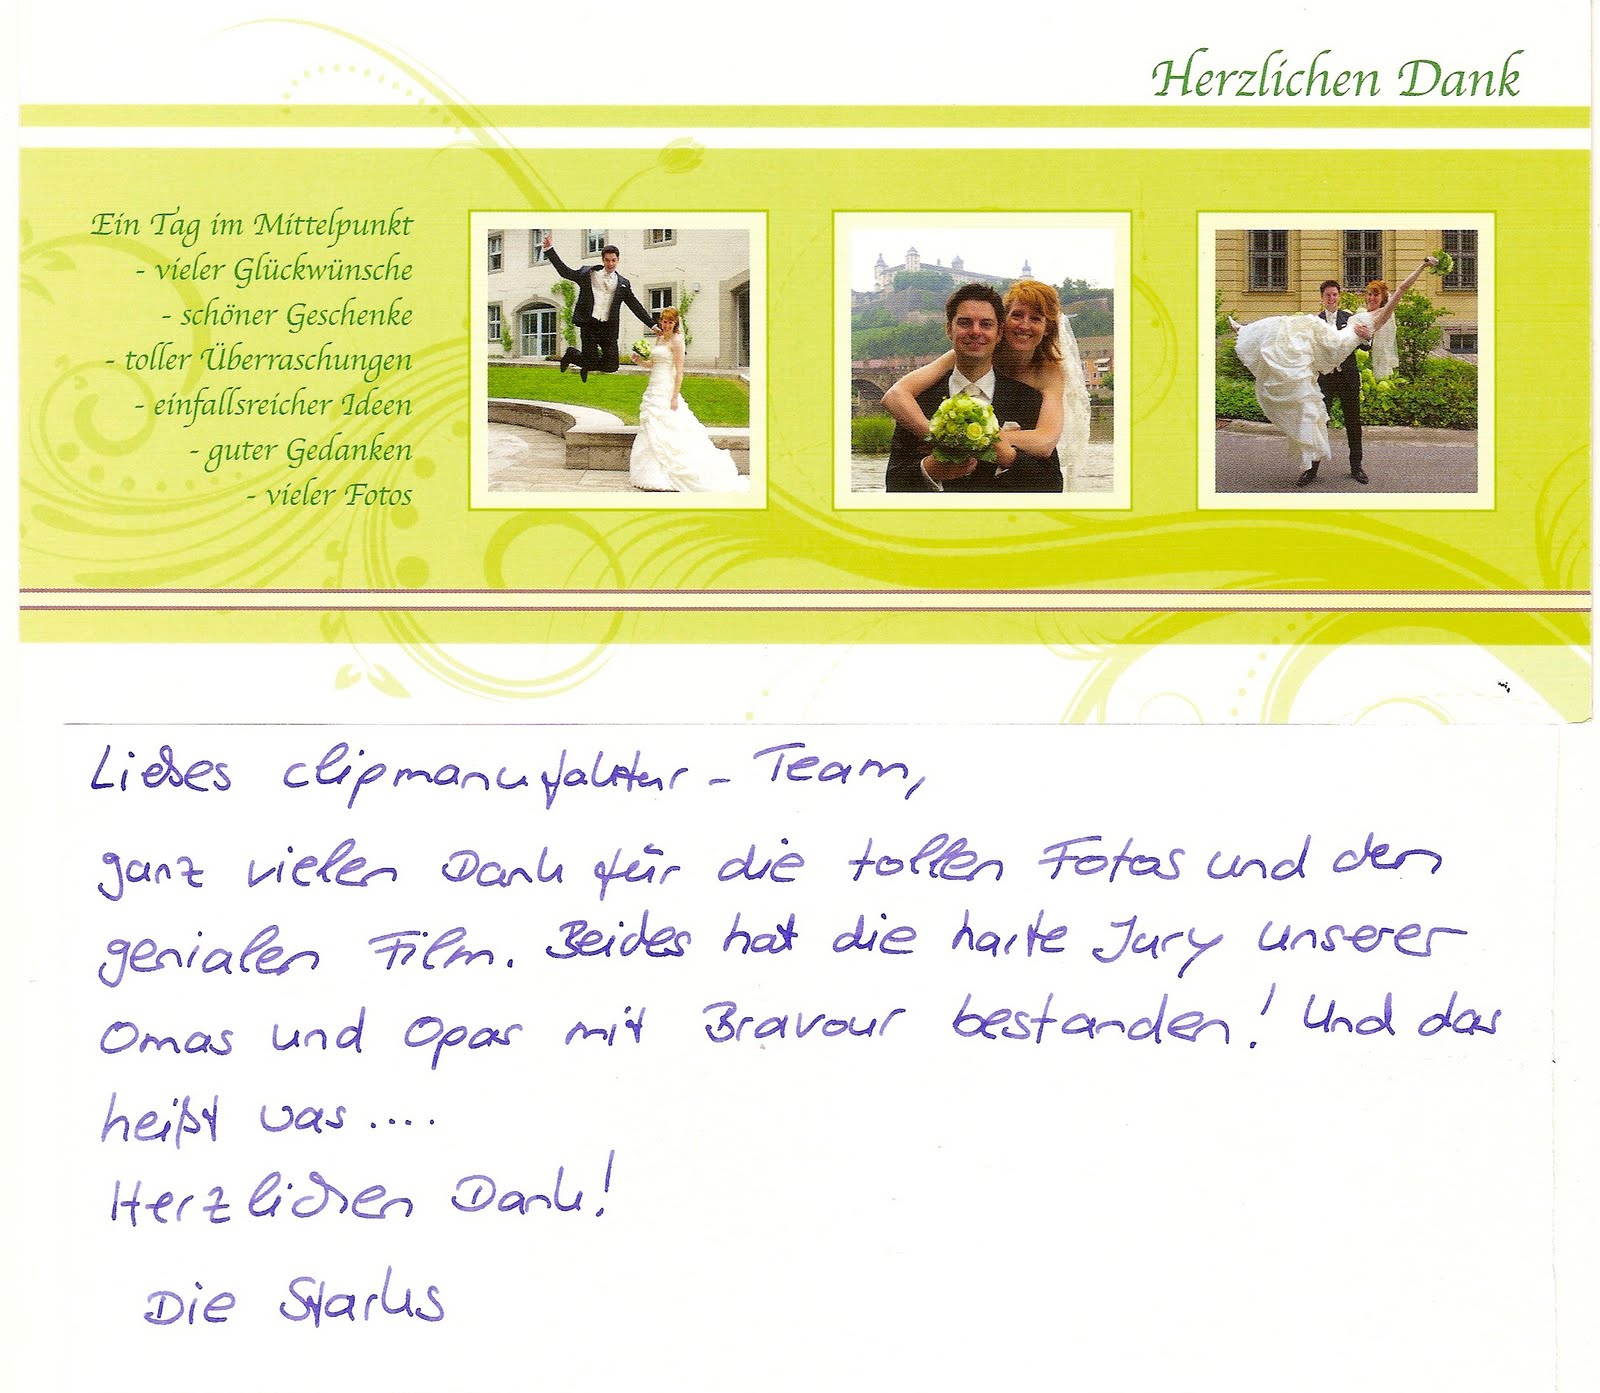 Herzlichen Dank
Ein Tag im Mittelpunkt
- vieler Glückwünsche
- schöner Geschenke
- toller Überraschungen
- einfallsreicher Ideen
- guter Gedanken
- vieler Fotos
Liebes clipmanufaktur - Team,
ganz vielen Dank für die tollen Fotos und den
genialen Film. Beides hat die harte Jury unserer
Omas und Opas mit Bravour bestanden! Und das
heißt was....
Herzlichen Dank!
Die Starks